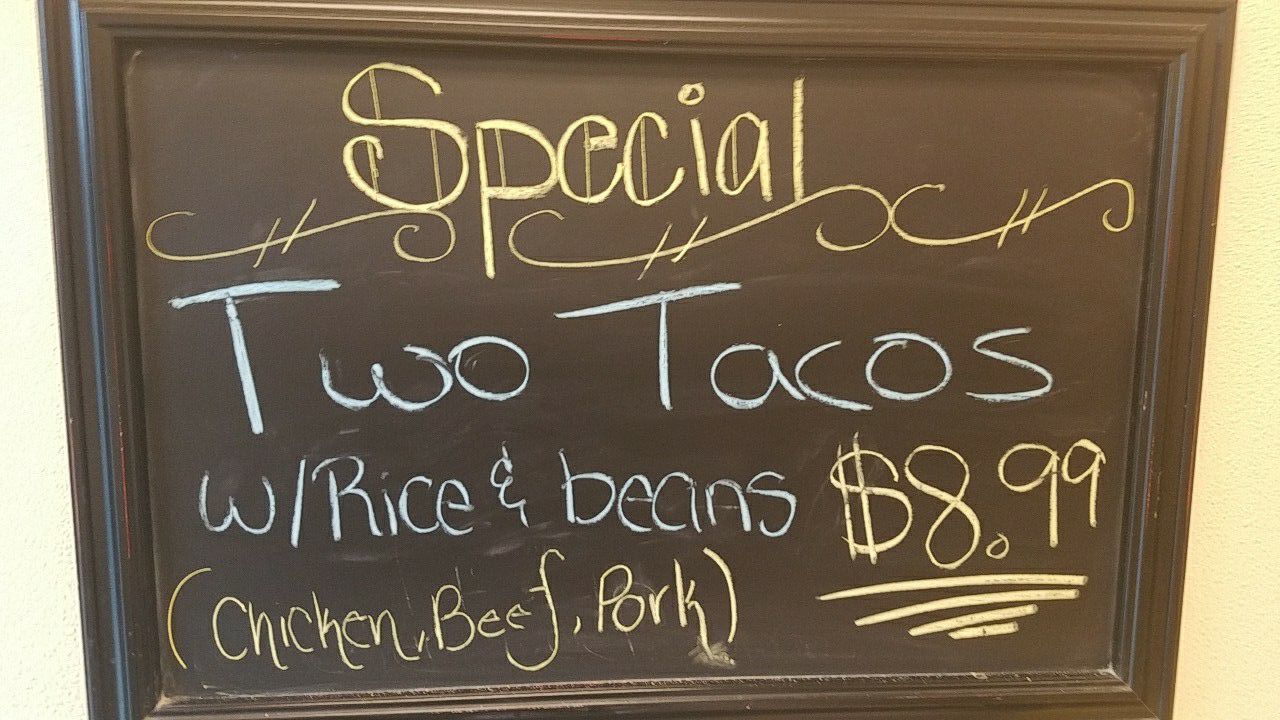 Special
Two Tacos
w/Rice & beans $8.99
(Chicken, Beef, Pork)